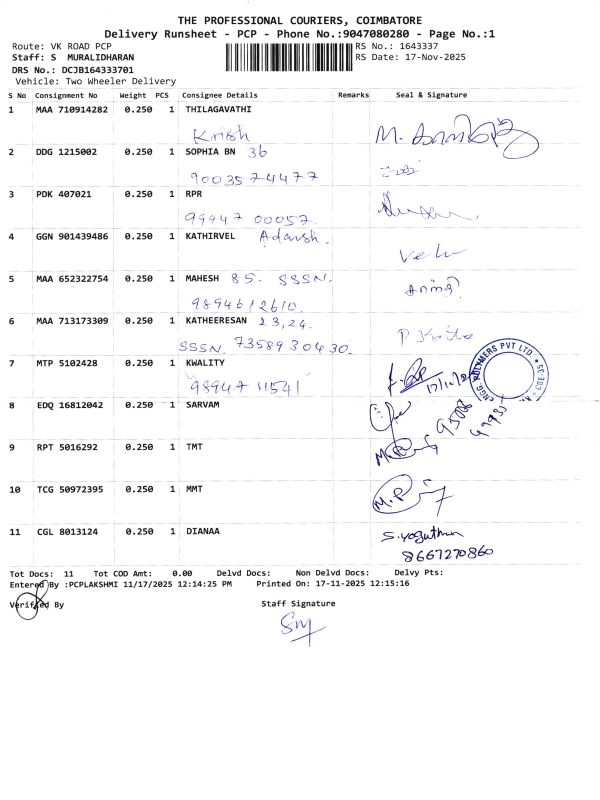 THE PROFESSIONAL COURIERS, COIMBATORE
Delivery Runsheet - PCP - Phone No.:9047080280 - Page No.:1
Route: VK ROAD PCP
RS No.: 1643337
Staff: S MURALIDHARAN
RS Date: 17-Nov-2025
DRS No.: DCJB164333701
Vehicle: Two Wheeler Delivery
S No Consignment No Weight PCS Consignee Details Remarks Seal & Signature
1 MAA 710914282 0.250 1 THILAGAVATHI
Krish
2 DDG 1215002 0.250 1 SOPHIA BN 36
9003574477
3 PDK 407021 0.250 1 RPR
99947 00057.
4 GGN 901439486 0.250 1 KATHIRVEL Adarsh.
Velu
5 MAA 652322754 0.250 1 MAHESH 85. SSSN.
9894612610.
6 MAA 713173309 0.250 1 KATHEERESAN 23,24.
SSSN. 7358930430.
7 MTP 5102428 0.250 1 KWALITY
98947 11541
8 EDQ 16812042 0.250 1 SARVAM
9 RPT 5016292 0.250 1 TMT
10 TCG 50972395 0.250 1 MMT
M.P
11 CGL 8013124 0.250 1 DIANAA
8667270860
Tot Docs: 11 Tot COD Amt: 0.00 Delvd Docs: Non Delvd Docs: Delvy Pts:
Entered By :PCPLAKSHMI 11/17/2025 12:14:25 PM Printed On: 17-11-2025 12:15:16
Verified By Staff Signature